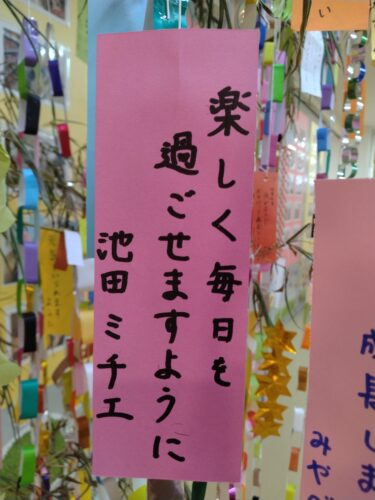 楽しく毎日を
過ごせますように
池田ミチエ
成長しま
みやび